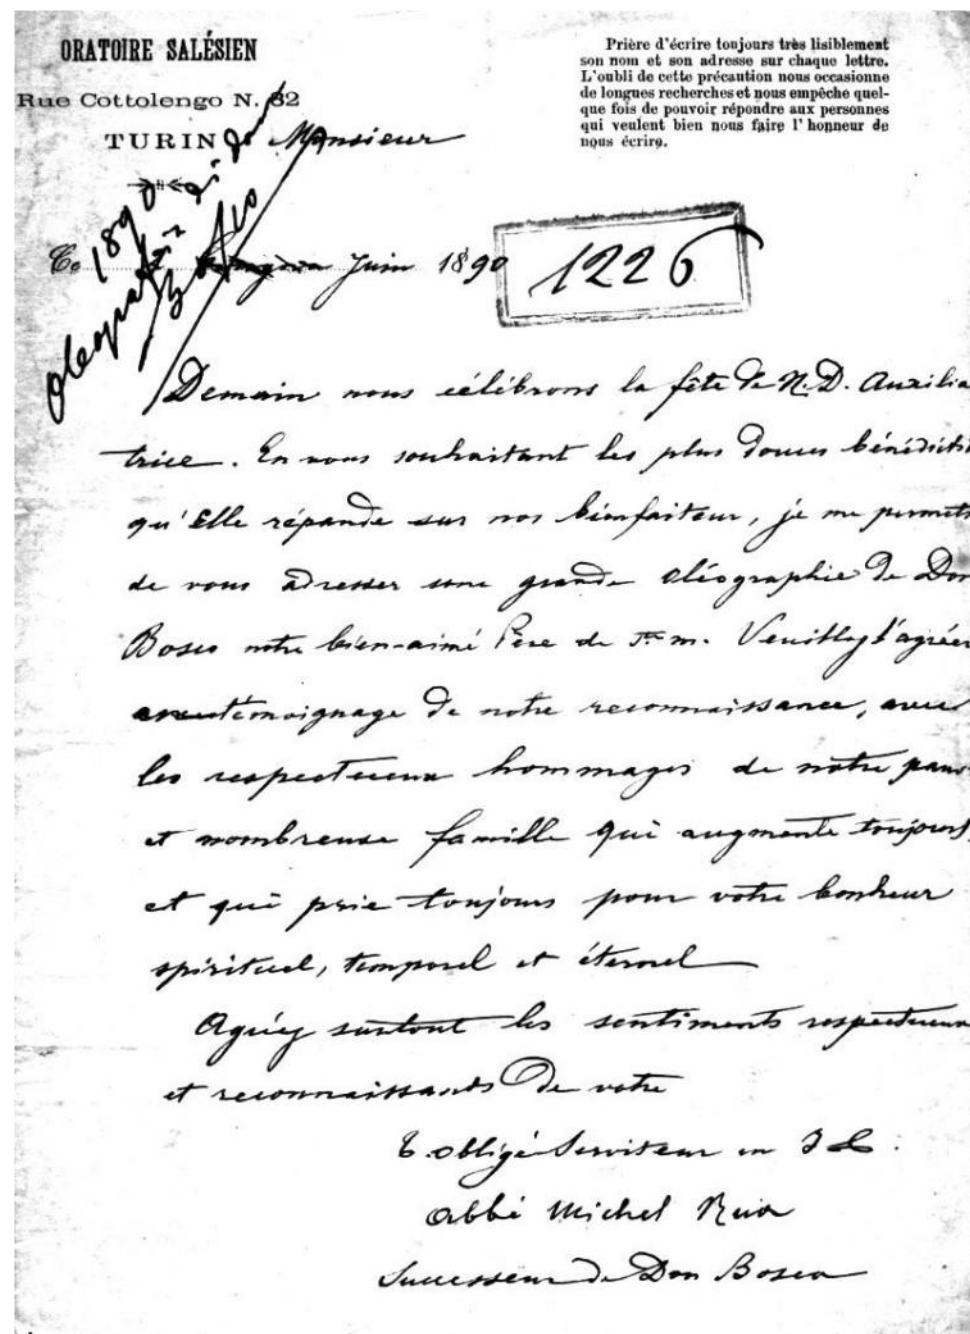 ORATOIRE SALÉSIEN
Rue Cottolengo N. 32
TURIN
Prière d'écrire toujours très lisiblement
son nom et son adresse sur chaque lettre.
L'oubli de cette précaution nous occasionne
de longues recherches et nous empêche quel-
que fois de pouvoir répondre aux personnes
qui veulent bien nous faire l'honneur de
nous écrire.
Monsieur
1890
Juin 1890
1226
Demain nous célébrons la fête de N. D. Auxilia
trice. En vous souhaitant les plus douces bénédicti
qu'Elle répande sur nos bienfaiteur, je me permets
de vous adresser une grande oléographie de Don
Bosco notre bien-aimé Père de Veuillez l'agréer
témoignage de notre reconnaissance, avec
les respectueux hommages de notre pauv
et nombreuse famille qui augmente toujours,
et qui prie toujours pour votre bonheur
spirituel, temporel et éternel
Agréez surtout les sentiments respectueux
et reconnaissants de votre
obligé Serviteur en
Abbé Michel Rua
Successeur de Don Bosco